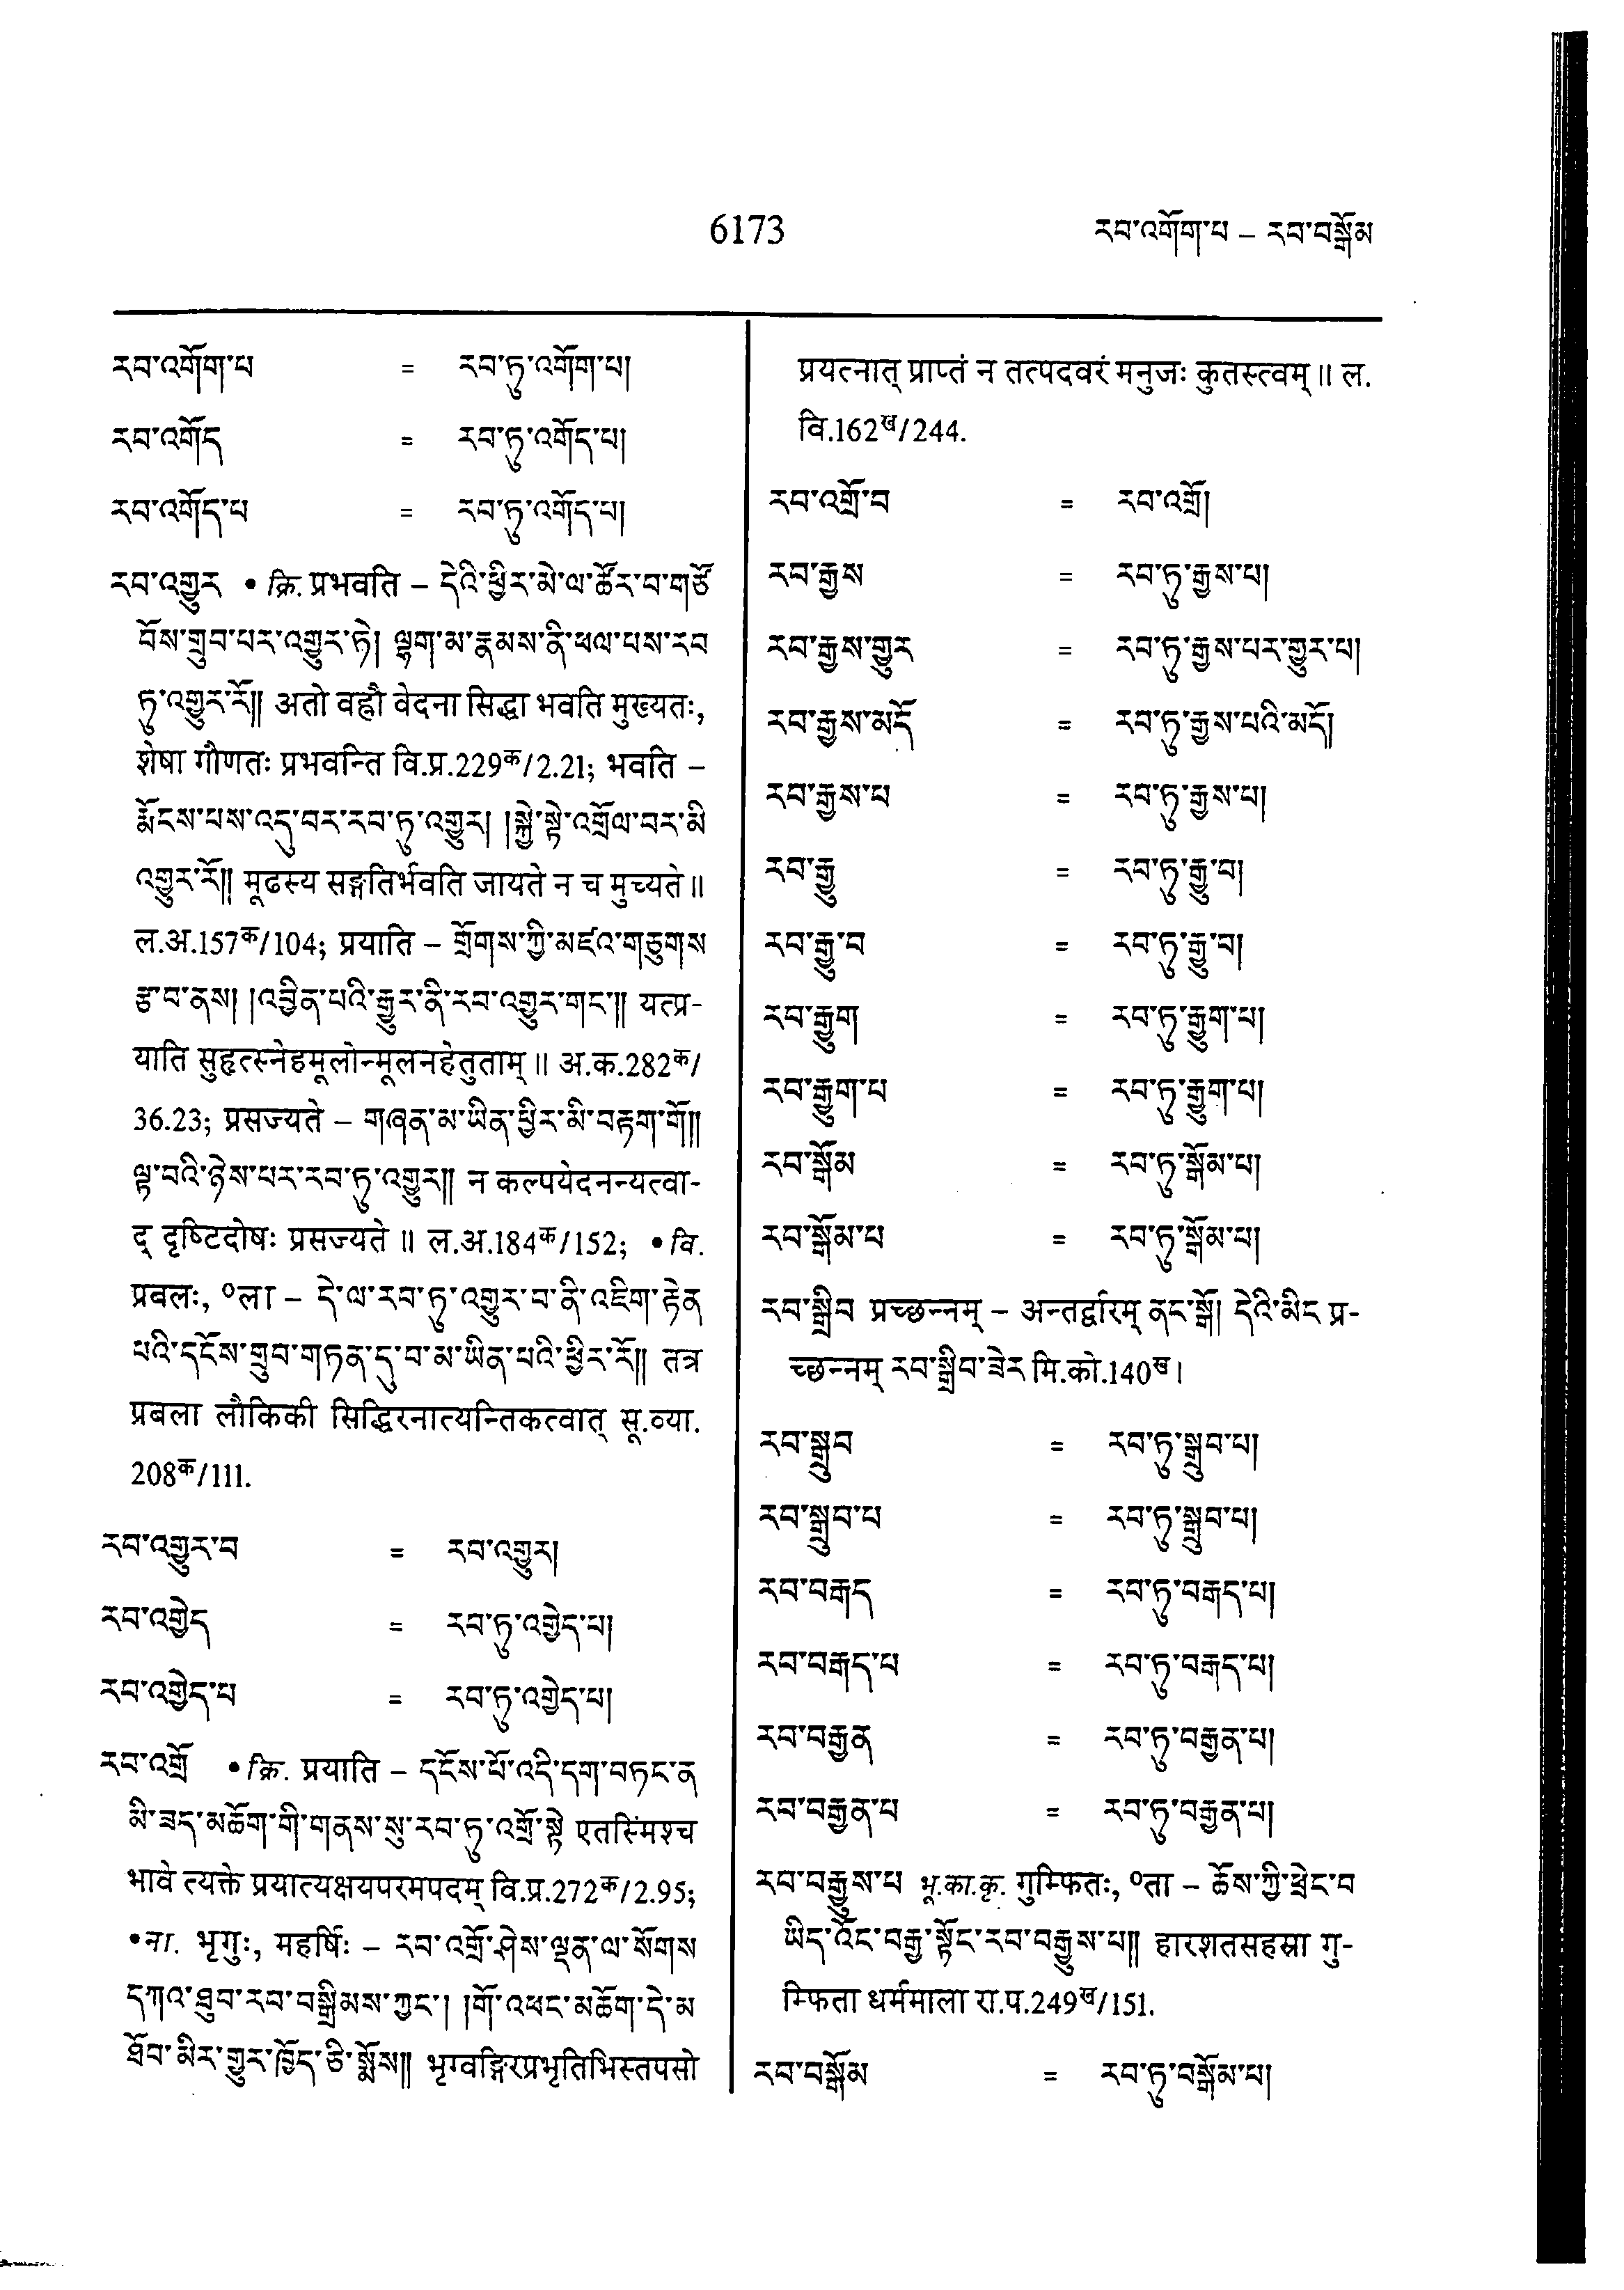 6173 རབ་འགོག་པ – རབ་བསྒོམ
རབ་འགོག་པ = རབ་ཏུ་འགོག་པ།
རབ་འགོད = རབ་ཏུ་འགོད་པ།
རབ་འགོད་པ = རབ་ཏུ་འགོད་པ།
རབ་འགྱུར • क्रि. प्रभवति – དེའི་ཕྱིར་མེ་ལ་ཚོར་བ་གཙོ
བོས་གྲུབ་པར་འགྱུར་ཏེ། ལྷག་མ་རྣམས་ནི་ཕལ་པས་རབ
ཏུ་འགྱུར་རོ།། अतो वह्नौ वेदना सिद्धा भवति मुख्यतः,
शेषा गौणतः प्रभवन्ति वि.प्र.229क/2.21; भवति –
རྨོངས་པས་འདུ་བར་རབ་ཏུ་འགྱུར། །སྐྱེ་སྟེ་འགྲོལ་བར་མི
འགྱུར་རོ།། मूढस्य सङ्गतिर्भवति जायते न च मुच्यते॥
ल.अ.157क/104; प्रयाति – གྲོགས་ཀྱི་མཛའ་གཅུགས
རྩ་བ་ནས། །འབྱིན་པའི་རྒྱུར་ནི་རབ་འགྱུར་གང་།། यत्प्र-
याति सुहृत्स्नेहमूलोन्मूलनहेतुताम्॥ अ.क.282क/
36.23; प्रसज्यते – གཞན་མ་ཡིན་ཕྱིར་མི་བརྟག་གོ།།
ལྟ་བའི་ཉེས་པར་རབ་ཏུ་འགྱུར།། न कल्पयेदनन्यत्वा-
द् दृष्टिदोषः प्रसज्यते॥ ल.अ.184क/152; • वि.
प्रबलः, ०ला – དེ་ལ་རབ་ཏུ་འགྱུར་བ་ནི་འཇིག་རྟེན
པའི་དངོས་གྲུབ་གཏན་དུ་བ་མ་ཡིན་པའི་ཕྱིར་རོ།། तत्र
प्रबला लौकिकी सिद्धिरनात्यन्तिकत्वात् सू.व्या.
208क/111.
རབ་འགྱུར་བ = རབ་འགྱུར།
རབ་འགྱེད = རབ་ཏུ་འགྱེད་པ།
རབ་འགྱེད་པ = རབ་ཏུ་འགྱེད་པ།
རབ་འགྲོ • क्रि. प्रयाति – དངོས་པོ་འདི་དག་བཏང་ན
མི་ཟད་མཆོག་གི་གནས་སུ་རབ་ཏུ་འགྲོ་སྟེ एतस्मिंश्च
भावे त्यक्ते प्रयात्यक्षयपरमपदम् वि.प्र.272क/2.95;
• ना. भृगुः, महर्षिः – རབ་འགྲོ་ཤེས་ལྡན་ལ་སོགས
དཀའ་ཐུབ་རབ་བསྒྲིམས་ཀྱང་། །གོ་འཕང་མཆོག་དེ་མ
ཐོབ་མིར་གྱུར་ཁྱོད་ཅི་སྨོས།། भृग्वङ्गिरप्रभृतिभिस्तपसो
प्रयत्नात् प्राप्तं न तत्पदवरं मनुजः कुतस्त्वम्॥ ल.
वि.162ख/244.
རབ་འགྲོ་བ = རབ་འགྲོ།
རབ་རྒྱས = རབ་ཏུ་རྒྱས་པ།
རབ་རྒྱས་གྱུར = རབ་ཏུ་རྒྱས་པར་གྱུར་པ།
རབ་རྒྱས་མདོ = རབ་ཏུ་རྒྱས་པའི་མདོ།
རབ་རྒྱས་པ = རབ་ཏུ་རྒྱས་པ།
རབ་རྒྱུ = རབ་ཏུ་རྒྱུ་བ།
རབ་རྒྱུ་བ = རབ་ཏུ་རྒྱུ་བ།
རབ་རྒྱུག = རབ་ཏུ་རྒྱུག་པ།
རབ་རྒྱུག་པ = རབ་ཏུ་རྒྱུག་པ།
རབ་སྒོམ = རབ་ཏུ་སྒོམ་པ།
རབ་སྒོམ་པ = རབ་ཏུ་སྒོམ་པ།
རབ་སྒྲིབ प्रच्छन्नम् – अन्तर्द्वारम् ནང་སྒོ། དེའི་མིང प्र-
च्छन्नम् རབ་སྒྲིབ་ཟེར मि.को.140ख।
རབ་སྒྲུབ = རབ་ཏུ་སྒྲུབ་པ།
རབ་སྒྲུབ་པ = རབ་ཏུ་སྒྲུབ་པ།
རབ་བརྒད = རབ་ཏུ་བརྒད་པ།
རབ་བརྒད་པ = རབ་ཏུ་བརྒད་པ།
རབ་བརྒྱན = རབ་ཏུ་བརྒྱན་པ།
རབ་བརྒྱན་པ = རབ་ཏུ་བརྒྱན་པ།
རབ་བརྒྱུས་པ भू.का.कृ. गुम्फितः, ०ता – ཆོས་ཀྱི་ཕྲེང་བ
ཡིད་འོང་བརྒྱ་སྟོང་རབ་བརྒྱུས་པ།། हारशतसहस्रा गु-
म्फिता धर्ममाला रा.प.249ख/151.
རབ་བསྒོམ = རབ་ཏུ་བསྒོམ་པ།